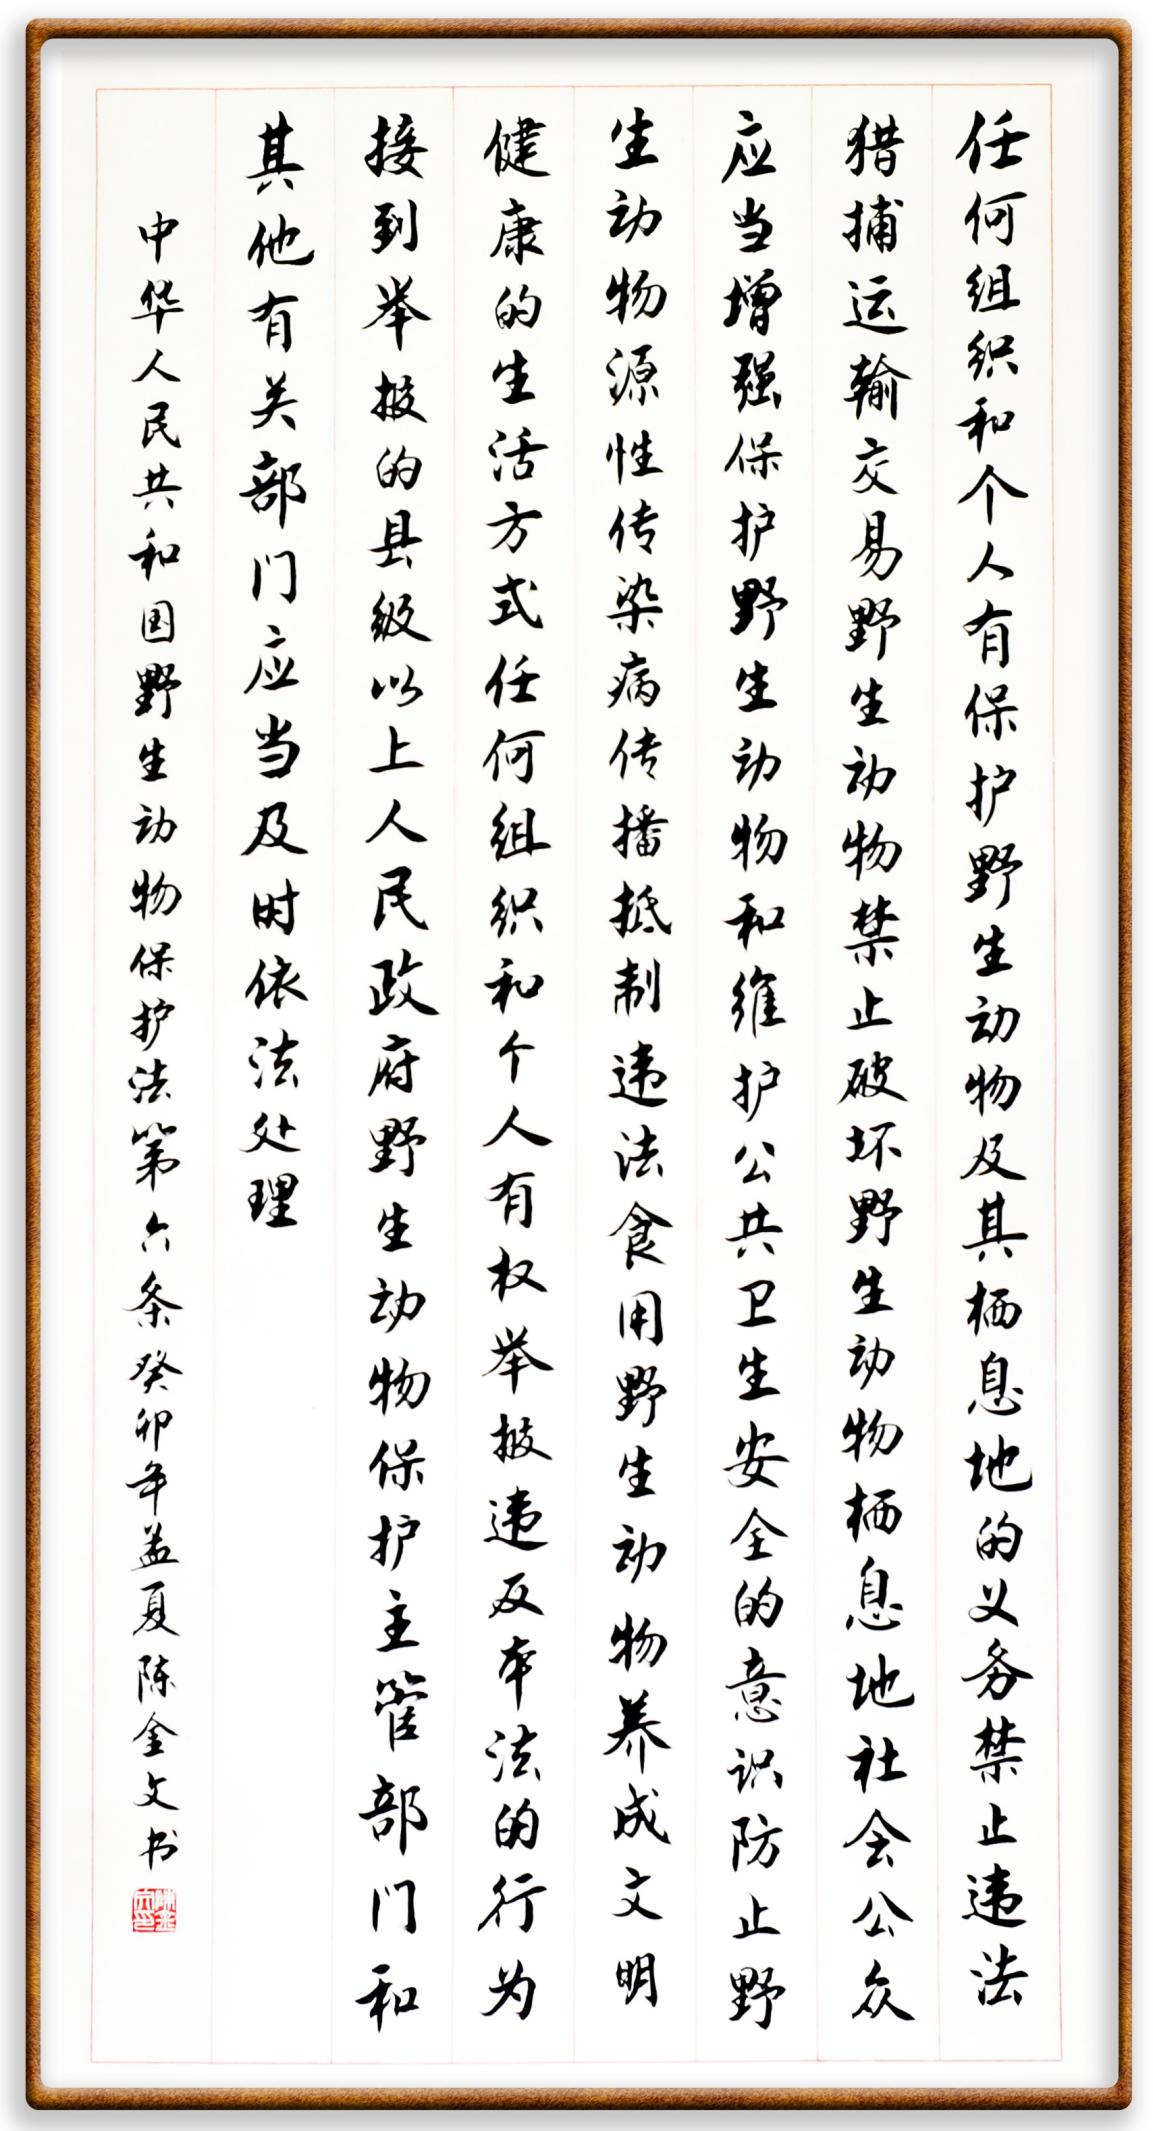 任何组织和个人有保护野生动物及其栖息地的义务禁止违法
猎捕运输交易野生动物禁止破坏野生动物栖息地社会公众
应当增强保护野生动物和维护公共卫生安全的意识防止野
生动物源性传染病传播抵制违法食用野生动物养成文明
健康的生活方式任何组织和个人有权举报违反本法的行为
接到举报的县级以上人民政府野生动物保护主管部门和
其他有关部门应当及时依法处理
中华人民共和国野生动物保护法第六条癸卯年孟夏陈金文书